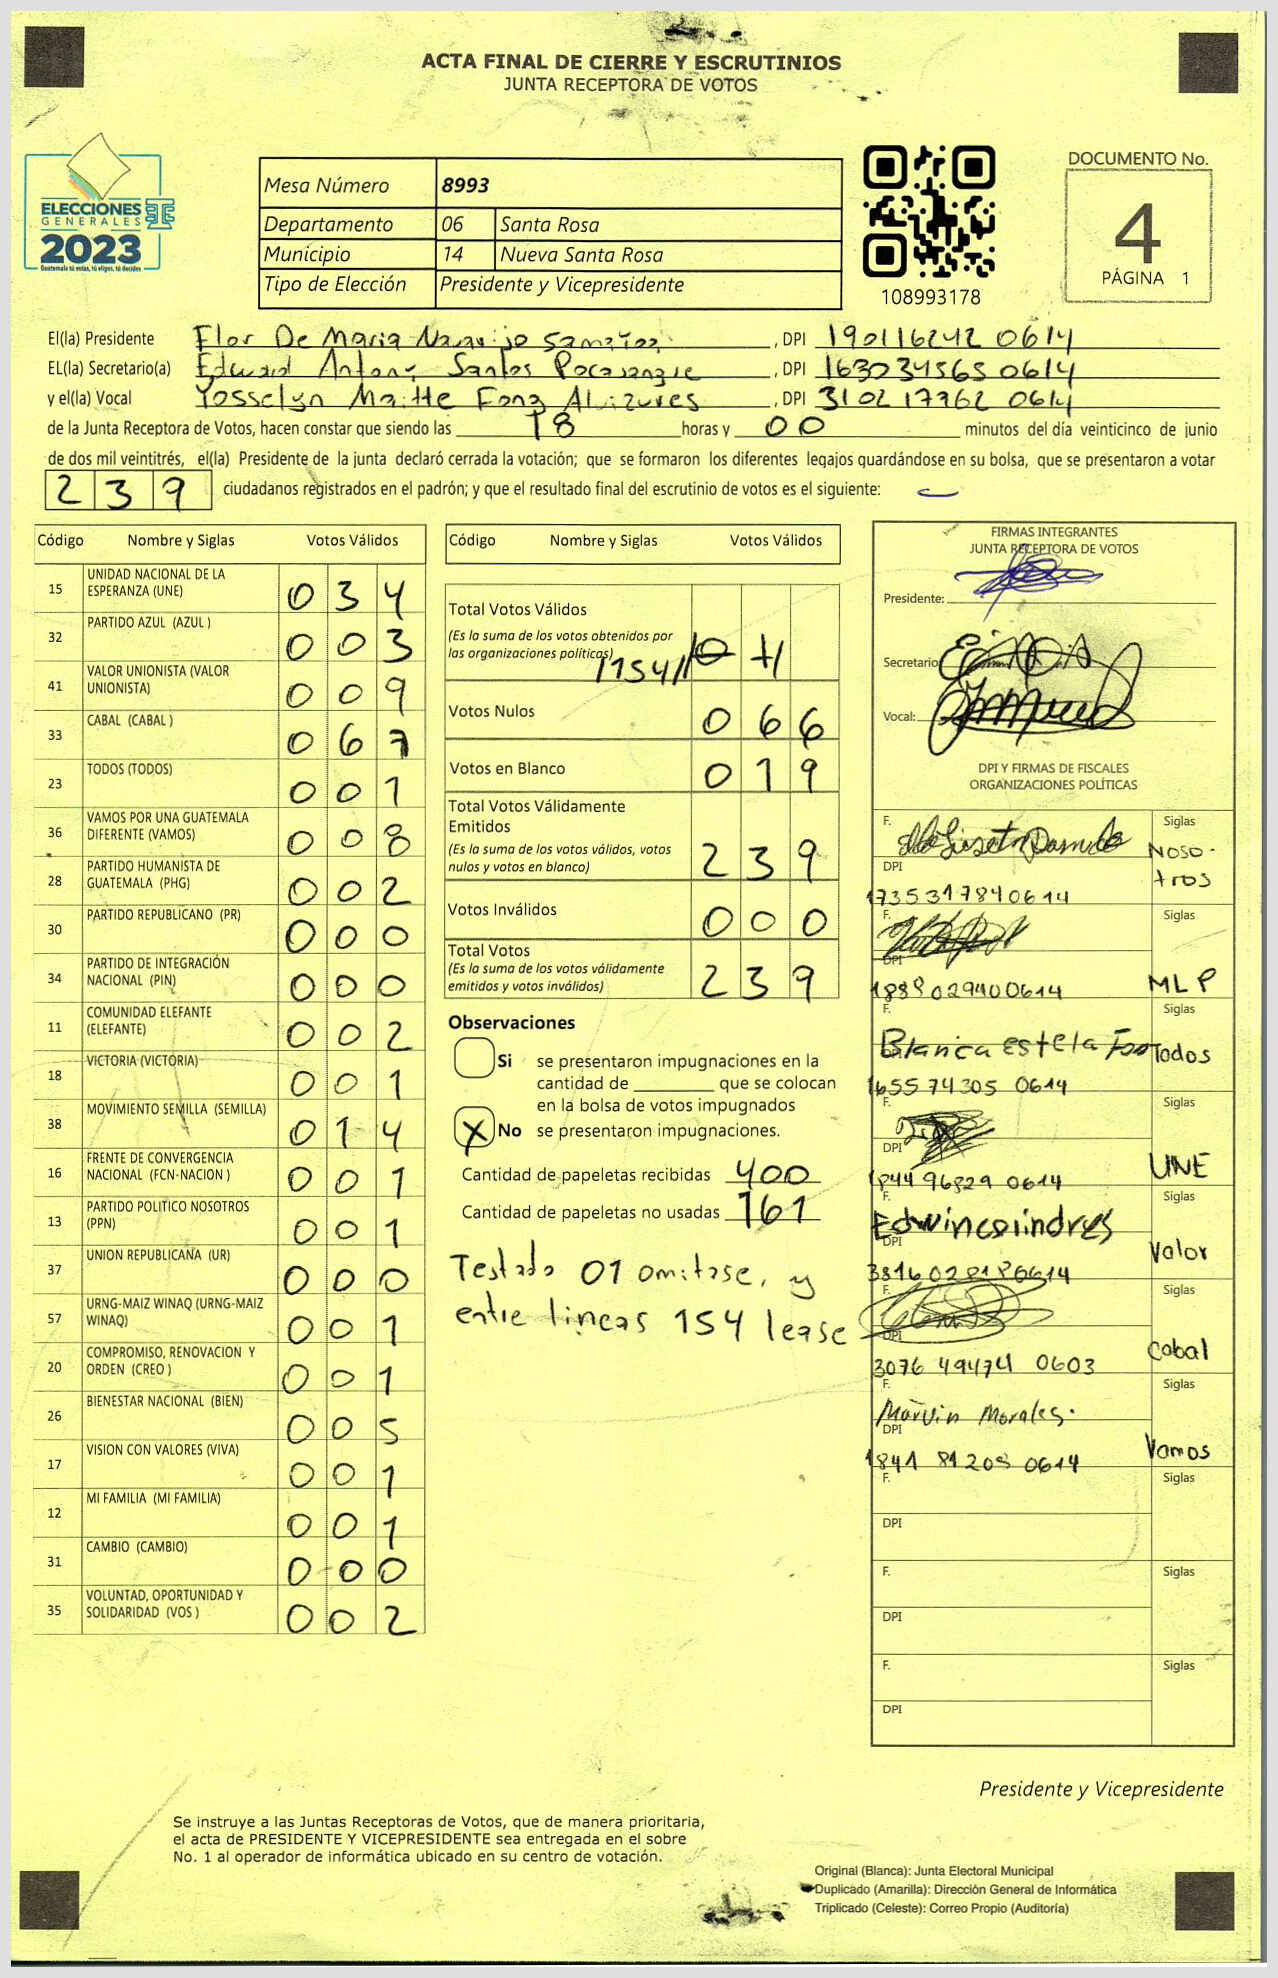 ACTA FINAL DE CIERRE Y ESCRUTINIOS
JUNTA RECEPTORA DE VOTOS
ELECCIONES
GENERALES
2023
Guatemala tú votas, tú eliges, tú decides
Mesa Número 8993
Departamento 06 Santa Rosa
Municipio 14 Nueva Santa Rosa
Tipo de Elección Presidente y Vicepresidente
108993178
DOCUMENTO No.
4
PÁGINA 1
El(la) Presidente Flor De Maria Naranjo , DPI 190116242 0614
EL(la) Secretario(a) Edward Antony Santos , DPI 163034565 0614
y el(la) Vocal Yosselyn Maitte Alvizures , DPI 3102 17762 0614
de la Junta Receptora de Votos, hacen constar que siendo las 18 horas y 00 minutos del día veinticinco de junio
de dos mil veintitrés, el(la) Presidente de la junta declaró cerrada la votación; que se formaron los diferentes legajos guardándose en su bolsa, que se presentaron a votar
239 ciudadanos registrados en el padrón; y que el resultado final del escrutinio de votos es el siguiente:
Código Nombre y Siglas Votos Válidos
15 UNIDAD NACIONAL DE LA ESPERANZA (UNE) 034
32 PARTIDO AZUL (AZUL ) 003
41 VALOR UNIONISTA (VALOR UNIONISTA) 009
33 CABAL (CABAL ) 067
23 TODOS (TODOS) 001
36 VAMOS POR UNA GUATEMALA DIFERENTE (VAMOS) 008
28 PARTIDO HUMANISTA DE GUATEMALA (PHG) 002
30 PARTIDO REPUBLICANO (PR) 000
34 PARTIDO DE INTEGRACIÓN NACIONAL (PIN) 000
11 COMUNIDAD ELEFANTE (ELEFANTE) 002
18 VICTORIA (VICTORIA) 001
38 MOVIMIENTO SEMILLA (SEMILLA) 014
16 FRENTE DE CONVERGENCIA NACIONAL (FCN-NACION ) 001
13 PARTIDO POLITICO NOSOTROS (PPN) 001
37 UNION REPUBLICANA (UR) 000
57 URNG-MAIZ WINAQ (URNG-MAIZ WINAQ) 001
20 COMPROMISO, RENOVACION Y ORDEN (CREO ) 001
26 BIENESTAR NACIONAL (BIEN) 005
17 VISION CON VALORES (VIVA) 001
12 MI FAMILIA (MI FAMILIA) 001
31 CAMBIO (CAMBIO) 000
35 VOLUNTAD, OPORTUNIDAD Y SOLIDARIDAD (VOS ) 002
Código Nombre y Siglas Votos Válidos
Total Votos Válidos
(Es la suma de los votos obtenidos por
las organizaciones políticas) 154
Votos Nulos 066
Votos en Blanco 019
Total Votos Válidamente
Emitidos
(Es la suma de los votos válidos, votos
nulos y votos en blanco) 239
Votos Inválidos 000
Total Votos
(Es la suma de los votos válidamente
emitidos y votos inválidos) 239
Observaciones
Si se presentaron impugnaciones en la
cantidad de ________ que se colocan
en la bolsa de votos impugnados
X No se presentaron impugnaciones.
Cantidad de papeletas recibidas 400
Cantidad de papeletas no usadas 161
Testado 01 omitase, y
entre lineas 154 lease
FIRMAS INTEGRANTES
JUNTA RECEPTORA DE VOTOS
Presidente:
Secretario
Vocal:
DPI Y FIRMAS DE FISCALES
ORGANIZACIONES POLÍTICAS
F. Siglas
DPI Noso-
tros
1735317840614
F. Siglas
DPI
1888029400614 MLP
F. Siglas
Blanca estela Todos
1655 74305 0614
F. Siglas
DPI
1844 96829 0614 UNE
F. Siglas
DPI Valor
F. Siglas
DPI
3076 49474 0603 Cabal
F. Siglas
Marvin Morales.
DPI
1841 81208 0614 Vamos
F. Siglas
DPI
F. Siglas
DPI
F. Siglas
DPI
Presidente y Vicepresidente
Se instruye a las Juntas Receptoras de Votos, que de manera prioritaria,
el acta de PRESIDENTE Y VICEPRESIDENTE sea entregada en el sobre
No. 1 al operador de informática ubicado en su centro de votación.
Original (Blanca): Junta Electoral Municipal
Duplicado (Amarilla): Dirección General de Informática
Triplicado (Celeste): Correo Propio (Auditoría)